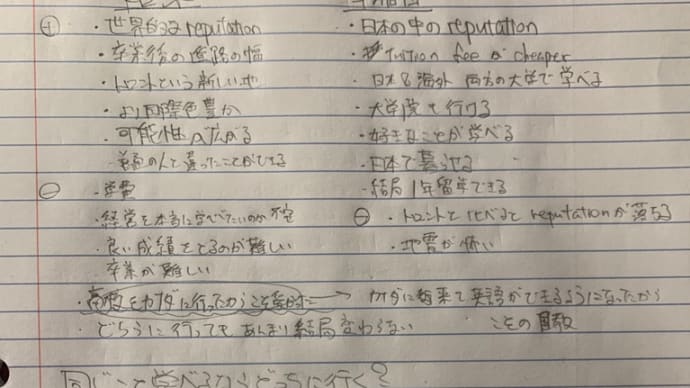 ⊕ ・世界的な reputation
・卒業後の進路の幅
・トロントという新しい地
・より国際色豊か
・可能性が広がる
・普通の人と違ったことができる
⊖ ・学費
・経営を本当に学びたいのか不安
・良い成績をとるのが難しい
卒業が難しい
・日本の中の reputation
・tuition fee が cheaper
・日本&海外 両方の大学で学べる
・大学院も行ける
・好きなことが学べる
・日本で暮らせる
・結局1年留年できる
⊖ ・トロントと比べると reputation が落ちる
・地震が怖い
・高校もカナダに行ったからこそ → カナダに来て英語ができるようになったから
・どちらに行ってもあんまり結局変わらない こその
同じこと学べるならどっちに行く?